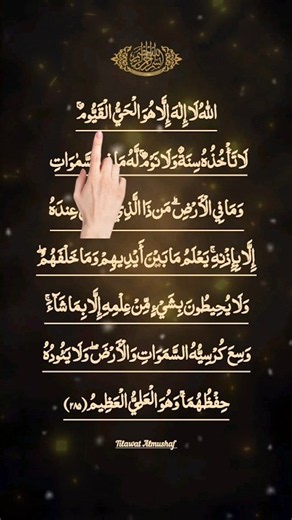 اللّٰهُ لَا إِلٰهَ إِلَّا هُوَ الْحَيُّ الْقَيُّومُ ۚ
لَا تَأْخُذُهُ سِنَةٌ وَلَا نَوْمٌ ۚ لَّهُ مَا سَّمٰوَاتِ
وَمَا فِي الْأَرْضِ ۗ مَن ذَا الَّذِي عِندَهُ
إِلَّا بِإِذْنِهِ ۚ يَعْلَمُ مَا بَيْنَ أَيْدِيهِمْ وَمَا خَلْفَهُمْ ۖ
وَلَا يُحِيطُونَ بِشَيْءٍ مِّنْ عِلْمِهِ إِلَّا بِمَا شَاءَ ۚ
وَسِعَ كُرْسِيُّهُ السَّمٰوَاتِ وَالْأَرْضَ ۖ وَلَا يَئُودُهُ
حِفْظُهُمَا ۚ وَهُوَ الْعَلِيُّ الْعَظِيمُ (٢٨٥)
Tilawat Almushaf